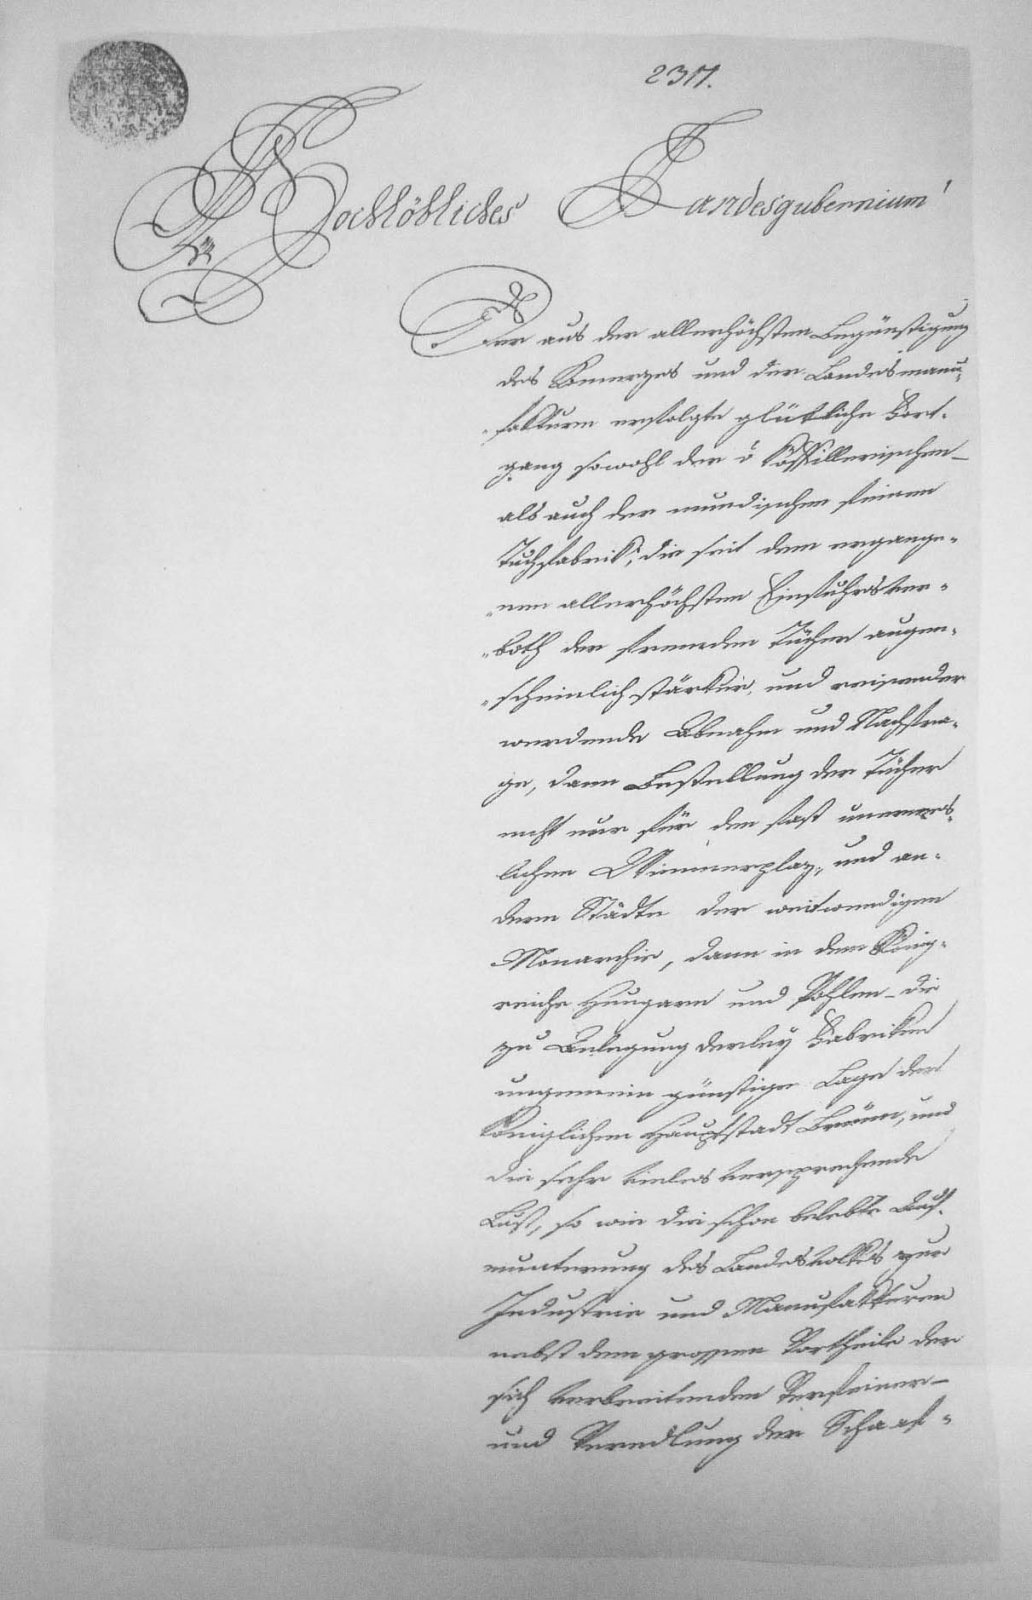 2311.
Hochlöbliches Landesgubernium!
Der aus der allerhöchsten Begünstigung
des Komerzes und der Landesmanu-
fakturen erfolgte glükliche Fort-
gang sowohl der v Köffillerischen
als auch der mundischen feinen
Tuchfabrik, die seit dem ergange-
nen allerhöchsten Einfuhrsver-
both der fremden Tücher augen-
scheinlich stärker, und
werdende Abnahm und Nachfra-
ge, dann Bestellung der Tücher
nicht nur für den fast unermes-
lichen Wiennerplaz, und an-
dern Städte der weitwendigen
Monarchie, dann in dem König-
reiche Hungarn und Pohlen – die
zu Anlegung derley Fabriken
ungemein günstige Lage der
Königlichen Hauptstadt Brünn, und
die sehr vieles versprechende
Lust, so wie die schon belebte Auf-
munterung des Landesvolkes zur
Industrie und Manufakturen
nebst dem grossen Vortheile der
sich verbreitenden Verfeiner-
und Veredlung der Schaaf-